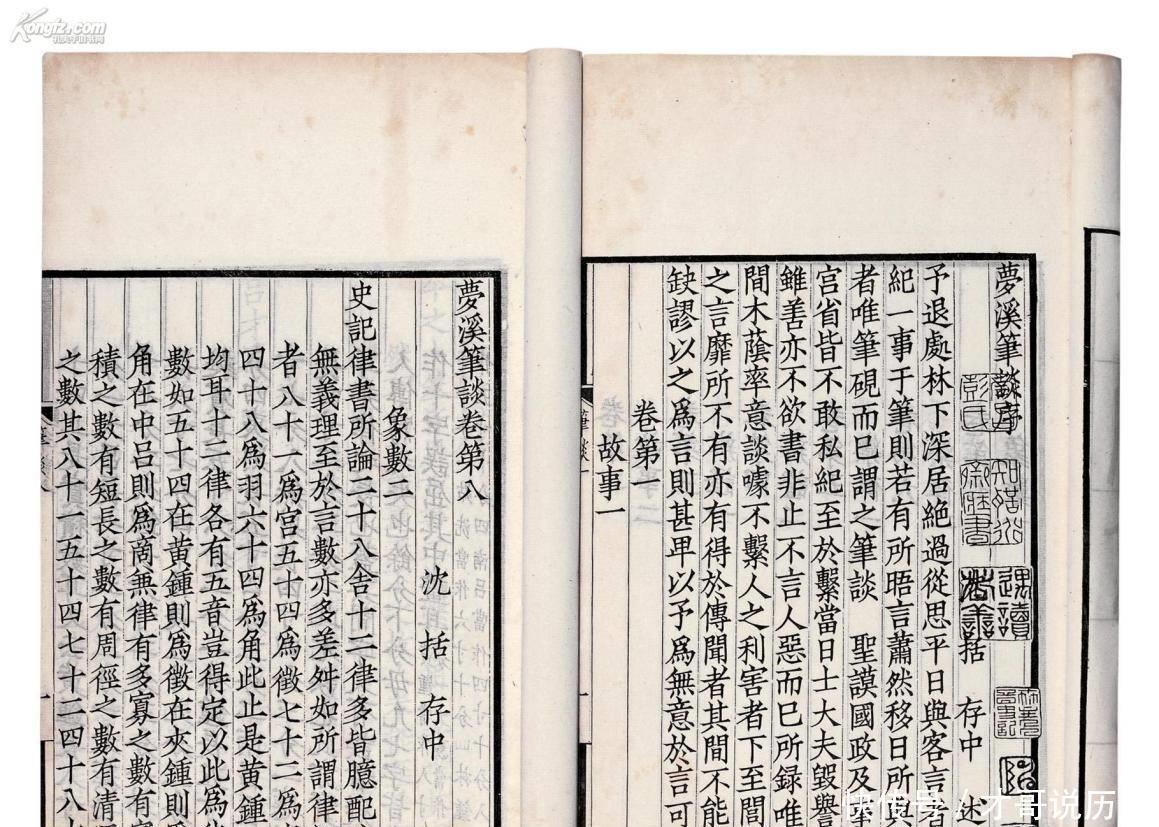 Kongfz.com
孔夫子旧书网
夢溪筆談序
括 存中 述
予退處林下深居絶過從思平日與客言者
紀一事于筆則若有所晤言蕭然移日所與
者唯筆硯而已謂之筆談 聖謨國政及事
宮省皆不敢私紀至於繫當日士大夫毀譽
雖善亦不欲書非止不言人惡而已所録唯
間木蔭率意談噱不繫人之利害者下至閭
之言靡所不有亦有得於傳聞者其間不能
缺謬以之爲言則甚卑以予爲無意於言可
卷第一
故事一
夢溪筆談卷第八
沈 括 存中
象數二
史記律書所論二十八舍十二律多皆臆配
無義理至於言數亦多差舛如所謂律
者八十一爲宮五十四爲徵七十二爲
四十八爲羽六十四爲角此止是黄鍾
均耳十二律各有五音豈得定以此爲
數如五十四在黄鍾則爲徵在夾鍾則
角在中呂則爲商兼律有多寡之數有
積之數有短長之數有周徑之數有清
之數其八十一五十四七十二四十八
快传号/才哥说历